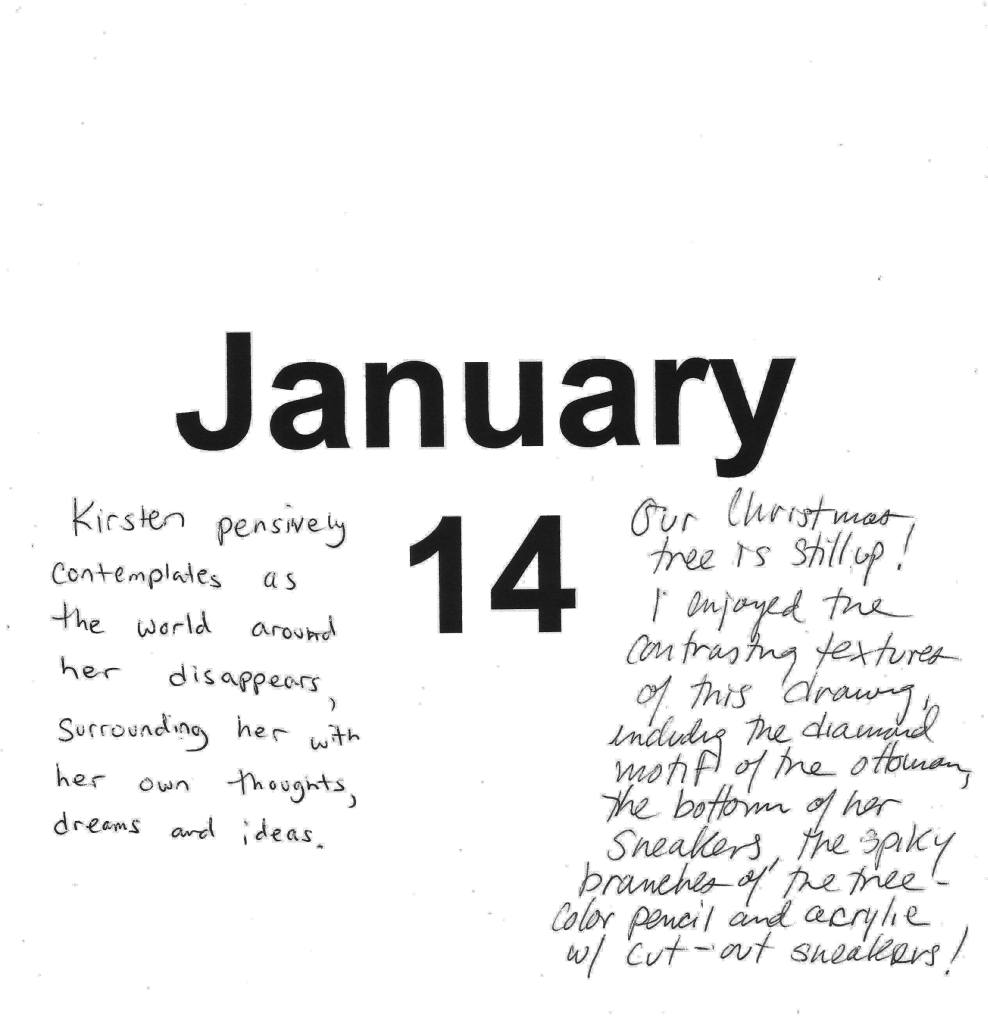 January
14
Kirsten pensively
contemplates as
the world around
her disappears,
surrounding her with
her own thoughts,
dreams and ideas.
Our Christmas
tree is still up!
I enjoyed the
contrasting textures
of this drawing,
including the diamond
motif of the ottoman,
the bottom of her
sneakers, the spiky
branches of the tree -
color pencil and acrylic
w/ cut-out sneakers!